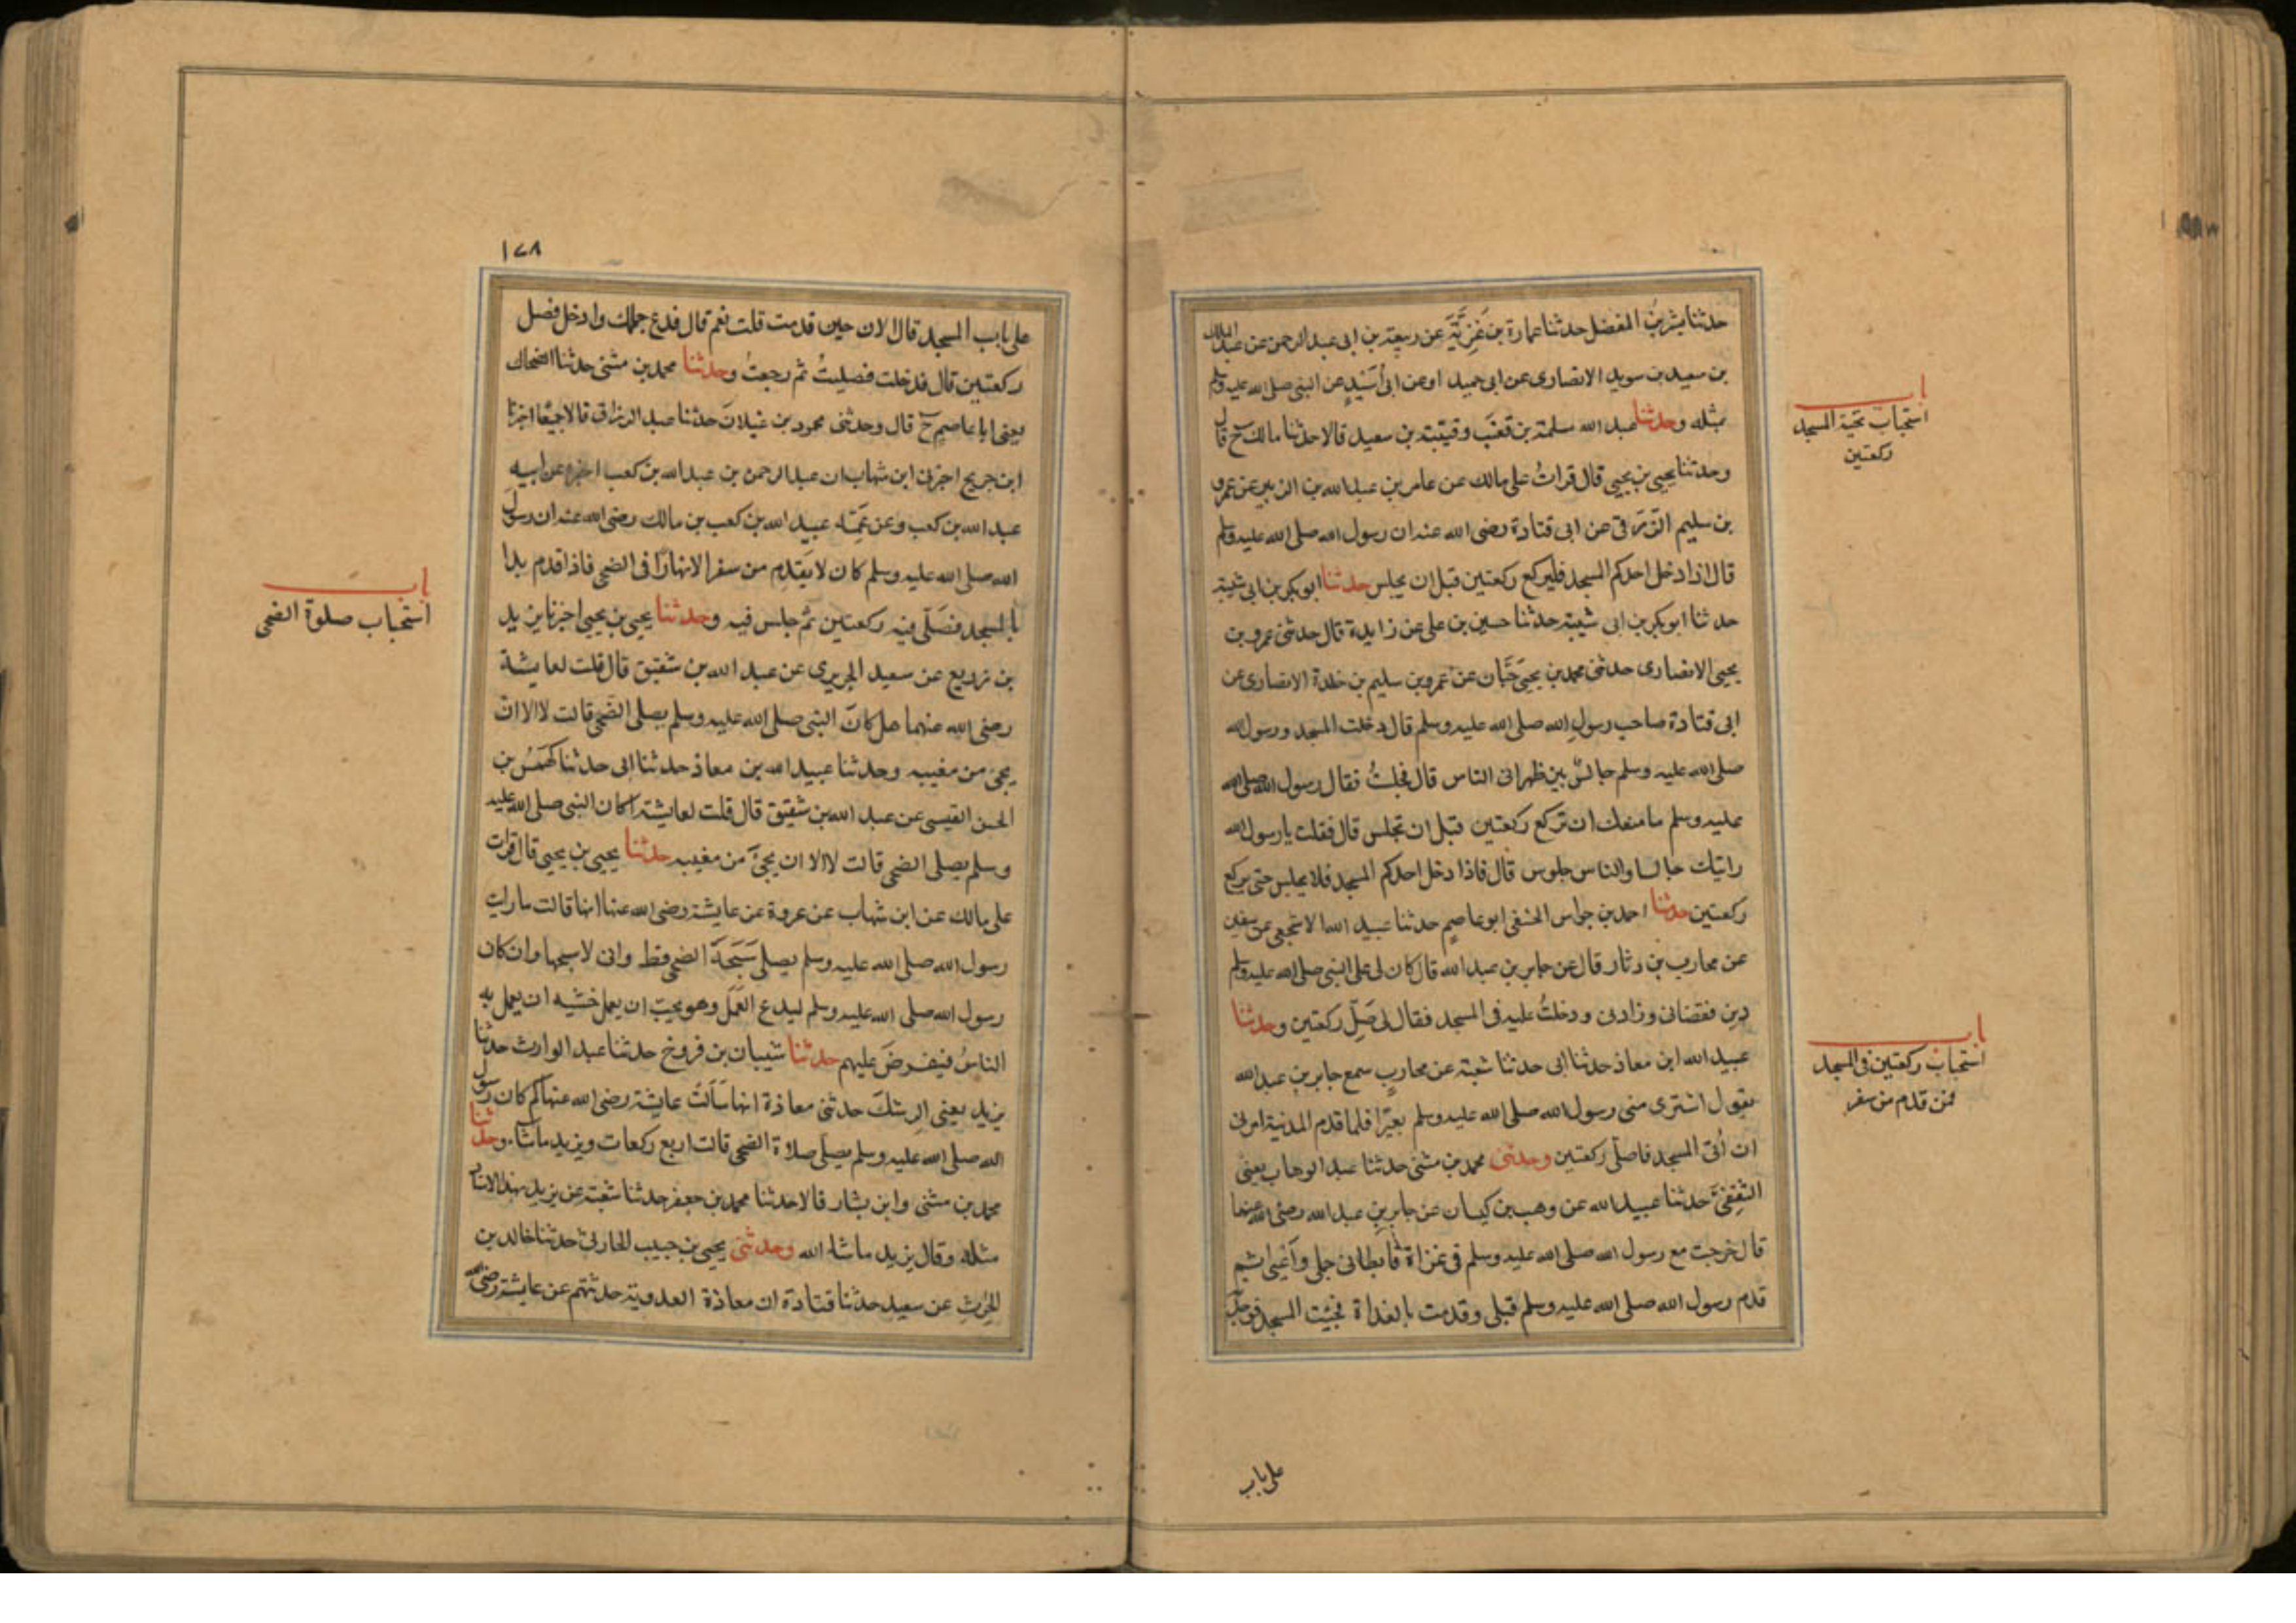 حدثنا بشر بنُ المفضل حدثنا عمارة بن غَزِيَّةَ عن ربيعة بن ابى عبد الرحمن عن عبد الملك
بن سعيد بن سويد الانصارى عن ابى حميد او عن ابى أُسَيْدٍ عن النبى صلى الله عليه وسلم
بمثله وحدثنا عبد الله سلمة بن قعنَب وقتيبة بن سعيد قالا حدثنا مالك ح قال
وحدثنا يحيى بن يحيى قال قراتُ على مالك عن عامر بن عبد الله بن الزبير عن عمرو
بن سليم الزّرَقى عن ابى قتادة رضى الله عنه ان رسول الله صلى الله عليه وسلم
قال اذا دخل احدكم المسجد فليركع ركعتين قبل ان يجلس حدثنا ابو بكر بن ابى شيبة
حدثنا ابو بكر بن ابى شيبة حدثنا حسين بن على عن زايدة قال حدثنى عمرو بن
يحيى الانصارى حدثنى محمد بن يحيى حَبَّان عن عَمرو بن سليم بن خلدة الانصارى عن
ابى قتادة صاحب رسولِ الله صلى الله عليه وسلم قال دخلت المسجد ورسول الله
صلى الله عليه وسلم جالسٌ بين ظهرانى الناس قال فجلستُ فقال رسول الله صلى الله
عليه وسلم ما منعك ان تركع ركعتين قبل ان تجلس قال فقلت يا رسول الله
رايتك جالسا والناس جلوس قال فاذا دخل احدكم المسجد فلا يجلس حتى يركع
ركعتين حدثنا احمد بن جواس الحنفى ابو عاصمٍ حدثنا عبيد الله الاشجعى عن سفين
عن محارب بن دثار قال عن جابر بن عبد الله قال كان لى على النبى صلى الله عليه وسلم
دين فقضانى وزادنى ودخلتُ عليه فى المسجد فقال لى صَلّ ركعتين وحدثنا
عبيد الله ابن معاذ حدثنا ابى حدثنا شعبة عن محاربٍ سمع جابر بن عبد الله
يقول اشترى منى رسول الله صلى الله عليه وسلم بعيرًا فلما قدم المدنية امرنى
ان اُتى المسجد فاصلى ركعتين وحدثنى محمد بن مثنى حدثنا عبد الوهاب يعنى
الثقفىَّ حدثنا عبيد الله عن وهب بن كيسان عن جابر بنِ عبد الله رضى الله عنهما
قال خرجت مع رسول الله صلى الله عليه وسلم فى غزاة فابطانى جملى واَعْيى ثم
قدم رسول الله صلى الله عليه وسلم قبلى وقدمت بالغداة فجئت المسجد فوجدته
على باب
باب
استحباب تحية المسجد
ركعتين
باب
استحباب ركعتين فى المسجد
لمن قدم من سفر
١٧٨
على باب المسجد قال الان حين قدمت قلت نعم قال فدع جملك وادخل فصل
ركعتين قال فدخلت فصليتُ ثم رجعتُ وحدثنا محمد بن مثنى حدثنا الضحاك
يعنى ابا عاصمٍ ح قال وحدثنى محمود بن غيلانَ حدثنا عبد الرزاق قالا جميعًا اخبرنا
ابن جريج اخبرنى ابن شهاب ان عبد الرحمن بن عبد الله بن كعب اخبره عن ابيه
عبد الله بن كعب وعن عَمِّه عبيد الله بن كعب بن مالك رضى الله عنه ان رسول
الله صلى الله عليه وسلم كان لا يَقدَم من سفر الا نهارًا فى الضحى فاذا قدم بدا
بالمسجد فصَلّى فيه ركعتين ثم جلس فيه وحدثنا يحيى بن يحيى اخبرنا يزيد
بن زريع عن سعيد الجريرى عن عبد الله بن شقيق قال قلت لعايشة
رضى الله عنهما هل كانَ النبى صلى الله عليه وسلم يصلى الضحى قالت لا الا ان
يجئ من مغيبه وحدثنا عبيد الله بن معاذ حدثنا ابى حدثنا كهمَسُ بن
الحسن القيسى عن عبد الله بن شقيق قال قلت لعايشة اكان النبى صلى الله عليه
وسلم يصلى الضحى قالت لا الا ان يجئَ من مغيبه حدثنا يحيى بن يحيى قال قرات
على مالك عن ابن شهاب عن عروة عن عايشة رضى الله عنها انها قالت ما رايت
رسول الله صلى الله عليه وسلم يصلى سَبَحَةَ الضحى قط وانى لاسبحها وان كان
رسول الله صلى الله عليه وسلم ليدع العَمَلَ وهو يحب ان يعمل خشيه ان يعمل به
الناسُ فيفرضَ عليهم حدثنا شيبان بن فروخ حدثنا عبد الوارث حدثنا
يزيد يعنى الرِشكَ حدثنى معاذة انها سَاَلَتْ عايشة رضى الله عنها كم كان رسول
الله صلى الله عليه وسلم يصلى صلاة الضحى قالت اربع ركعات ويزيد ماشاء وحدثنا
محمد بن مثنى وابن بشار قالا حدثنا محمد بن جعفر حدثنا شعبة عن يزيد بهذا الاسناد
مثله وقال يزيد ماشاء الله وحدثنى يحيى بن حبيب الحارثى حدثنا خالد بن
الحرِثِ عن سعيد حدثنا قتادة ان معاذة العدوية حدثتهم عن عايشة رضى الله
باب
استحباب صلوة الضحى